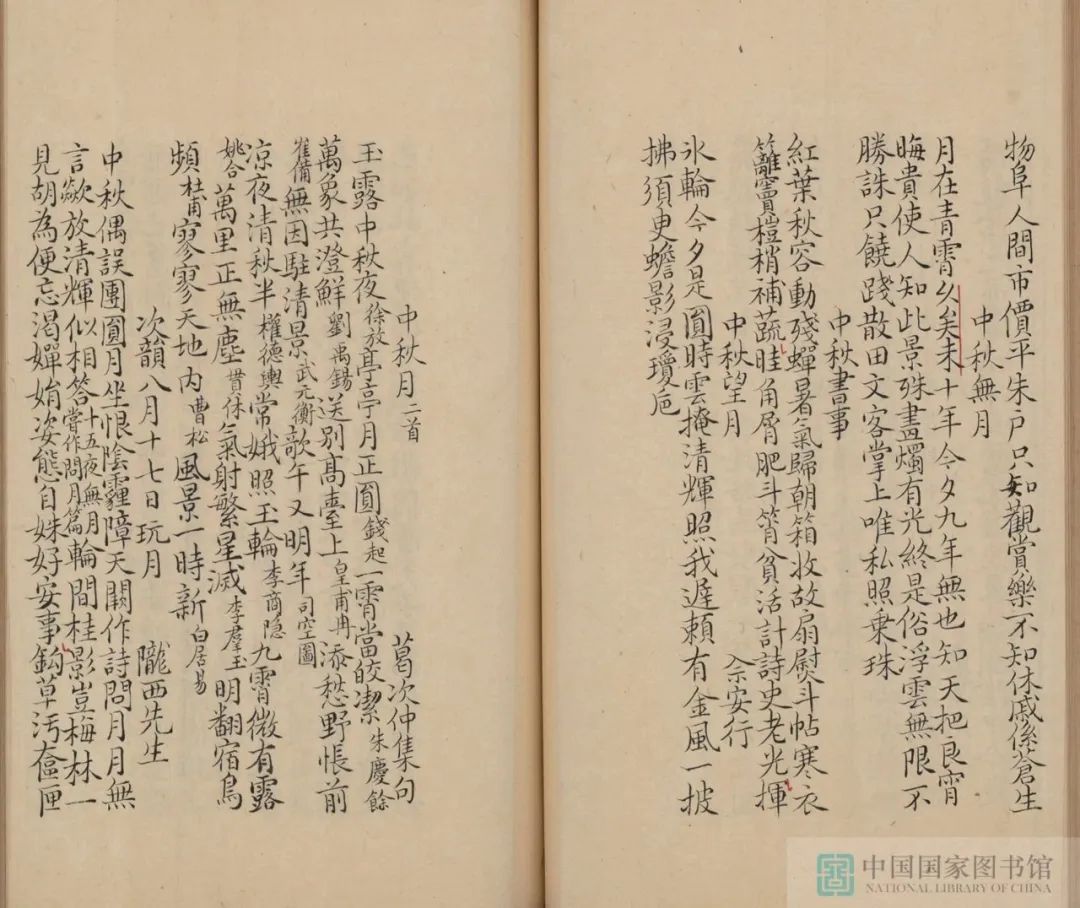 物阜人間市價平朱户只知觀賞樂不知休戚係蒼生
中秋無月
月在青霄久矣未十年今夕九年無也知天把良宵
晦貴使人知此景殊盡燭有光終是俗浮雲無限不
勝誅只饒踐散田文客掌上唯私照乗珠
中秋書事
紅葉秋容動殘蟬暑氣歸朝箱收故扇熨斗帖寒衣
籬竇樁梢補蔬畦角屑肥斗筲貧活計詩史老光揮
中秋望月 佘安行
氷輪今夕是圓時雲掩清輝照我遲頼有金風一披
拂須更蟾影浸瓊卮
中秋月二首 葛次仲集句
玉露中秋夜徐放亭亭月正圓錢起一霄當皎潔朱慶餘
萬象共澄鮮劉禹錫送別髙臺上皇甫冉添愁野帳前
崔備無因駐清景武元衡歌午又明年司空圖
凉夜清秋半權德輿常娥照玉輪李商隠九霄微有露
姚合萬里正無塵曹休氣射繁星滅李羣玉明翻宿鳥
頻杜甫寥寥天地内曹松風景一時新白居易
次韻八月十七日玩月 隴西先生
中秋偶誤團圓月坐恨陰霾障天闕作詩問月月無
言歘放清輝似相答十五夜無月嘗作問月篇輪間桂影豈梅林一
見胡為便忘渴嬋娟姿態自姝好安事鈎草汚奩匣
中国国家图书馆
NATIONAL LIBRARY OF CHINA